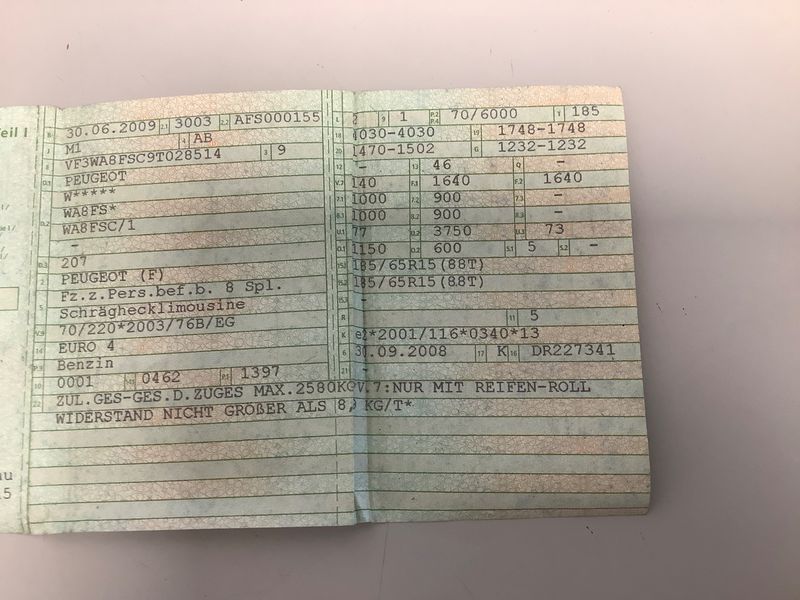 Teil I
B 30.06.2009 2.1 3003 2.2 AFS000155 L 2 9 1 P.2 P.4 70/6000 T 185
J M1 4 AB 18 4030-4030 19 1748-1748
E VF3WA8FSC9T028514 3 9 20 1470-1502 G 1232-1232
D.1 PEUGEOT 12 - 13 46 Q -
W***** V.7 140 F.1 1640 F.2 1640
WA8FS* 7.1 1000 7.2 900 7.3 -
D.2 WA8FSC/1 8.1 1000 8.2 900 8.3 -
- U.1 77 U.2 3750 U.3 73
D.3 207 O.1 1150 O.2 600 S.1 5 S.2 -
2 PEUGEOT (F) 15.1 185/65R15(88T)
5 Fz.z.Pers.bef.b. 8 Spl. 15.2 185/65R15(88T)
Schräghecklimousine 15.3 -
V.9 70/220*2003/76B/EG R 11 5
14 EURO 4 K e2*2001/116*0340*13
P.3 Benzin 6 30.09.2008 17 K 16 DR227341
10 0001 14.1 0462 P.1 1397 21 -
22 ZUL.GES-GES.D.ZUGES MAX.2580KG V.7:NUR MIT REIFEN-ROLL
WIDERSTAND NICHT GROßER ALS 8, KG/T*